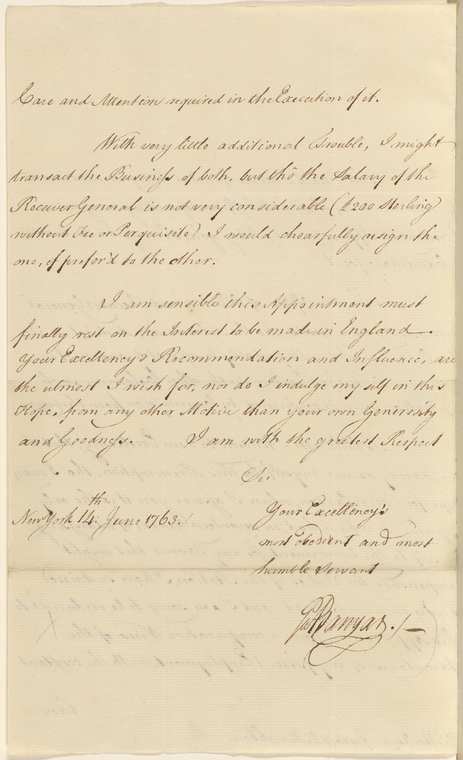 Care and Attention required in the Execution of it.
With very little additional Trouble, I might
transact the Business of both, but tho' the Salary of the
Receiver General is not very considerable (£200 Sterling
without Fee or Perquisite) I would chearfully resign the
one, if prefer'd to the other.
I am sensible this Appointment must
finally rest on the Interest to be made in England.
Your Excellency's Recommendation and Influence, are
the utmost I wish for, nor do I indulge myself in this
Hope, from any other Motive than your own Generosity
and Goodness. I am with the greatest Respect
Sir
New York 14th June 1763.
Your Excellency's
most obedient and most
humble Servant
Banyar